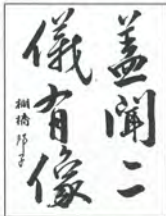 蓋聞二
儀有像
棚橋